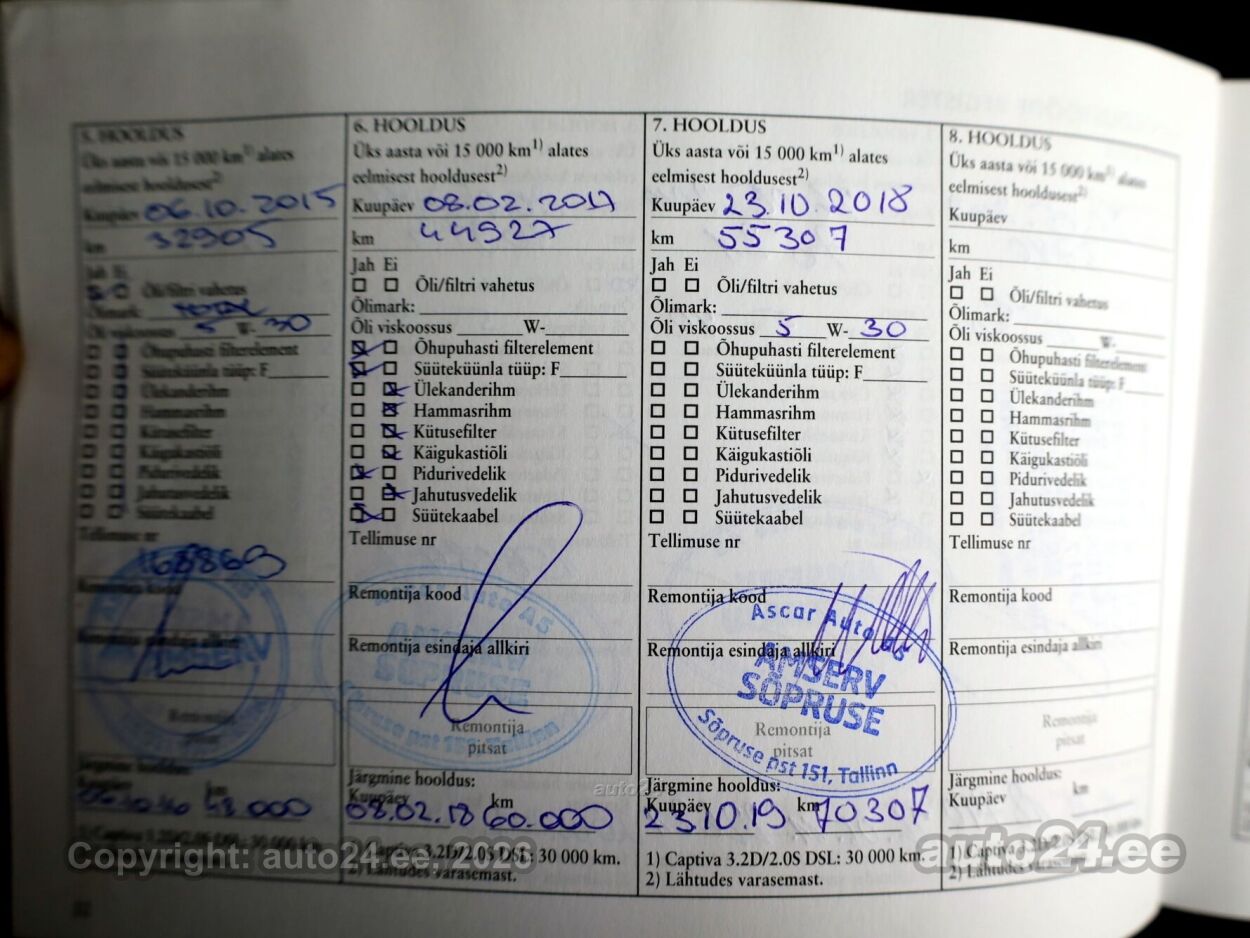 5. HOOLDUS
Üks aasta või 15 000 km1) alates
eelmisest hooldusest2)
Kuupäev 06.10.2015
km 32905
Jah Ei
Õli/filtri vahetus
Õlimark: TOTAL
Õli viskoossus 5 W- 30
Õhupuhasti filterelement
Süüteküünla tüüp: F
Ülekanderihm
Hammasrihm
Kütusefilter
Käigukastiõli
Pidurivedelik
Jahutusvedelik
Süütekaabel
Tellimuse nr
168869
Remontija kood
Remontija esindaja allkiri
Remontija
pitsat
Järgmine hooldus:
Kuupäev km
06.10.16 48.000
1) Captiva 3.2D/2.0S DSL: 30 000 km.
22
6. HOOLDUS
Üks aasta või 15 000 km1) alates
eelmisest hooldusest2)
Kuupäev 08.02.2017
km 44927
Jah Ei
Õli/filtri vahetus
Õlimark:
Õli viskoossus W-
Õhupuhasti filterelement
Süüteküünla tüüp: F
Ülekanderihm
Hammasrihm
Kütusefilter
Käigukastiõli
Pidurivedelik
Jahutusvedelik
Süütekaabel
Tellimuse nr
Remontija kood
Remontija esindaja allkiri
AMSERV
SÕPRUSE
Sõpruse pst 151, Tallinn
Remontija
pitsat
Järgmine hooldus:
Kuupäev km
08.02.18 60.000
1) Captiva 3.2D/2.0S DSL: 30 000 km.
2) Lähtudes varasemast.
7. HOOLDUS
Üks aasta või 15 000 km1) alates
eelmisest hooldusest2)
Kuupäev 23.10.2018
km 55307
Jah Ei
Õli/filtri vahetus
Õlimark:
Õli viskoossus 5 W- 30
Õhupuhasti filterelement
Süüteküünla tüüp: F
Ülekanderihm
Hammasrihm
Kütusefilter
Käigukastiõli
Pidurivedelik
Jahutusvedelik
Süütekaabel
Tellimuse nr
Remontija kood
Ascar Auto AS
Remontija esindaja allkiri
AMSERV
SÕPRUSE
Sõpruse pst 151, Tallinn
Remontija
pitsat
Järgmine hooldus:
Kuupäev km
23.10.19 70307
1) Captiva 3.2D/2.0S DSL: 30 000 km.
2) Lähtudes varasemast.
8. HOOLDUS
Üks aasta või 15 000 km1) alates
eelmisest hooldusest2)
Kuupäev
km
Jah Ei
Õli/filtri vahetus
Õlimark:
Õli viskoossus W-
Õhupuhasti filterelement
Süüteküünla tüüp: F
Ülekanderihm
Hammasrihm
Kütusefilter
Käigukastiõli
Pidurivedelik
Jahutusvedelik
Süütekaabel
Tellimuse nr
Remontija kood
Remontija esindaja allkiri
Remontija
pitsat
Järgmine hooldus:
Kuupäev km
2) Lähtudes varasemast.
Copyright: auto24.ee, 2023
auto24.ee